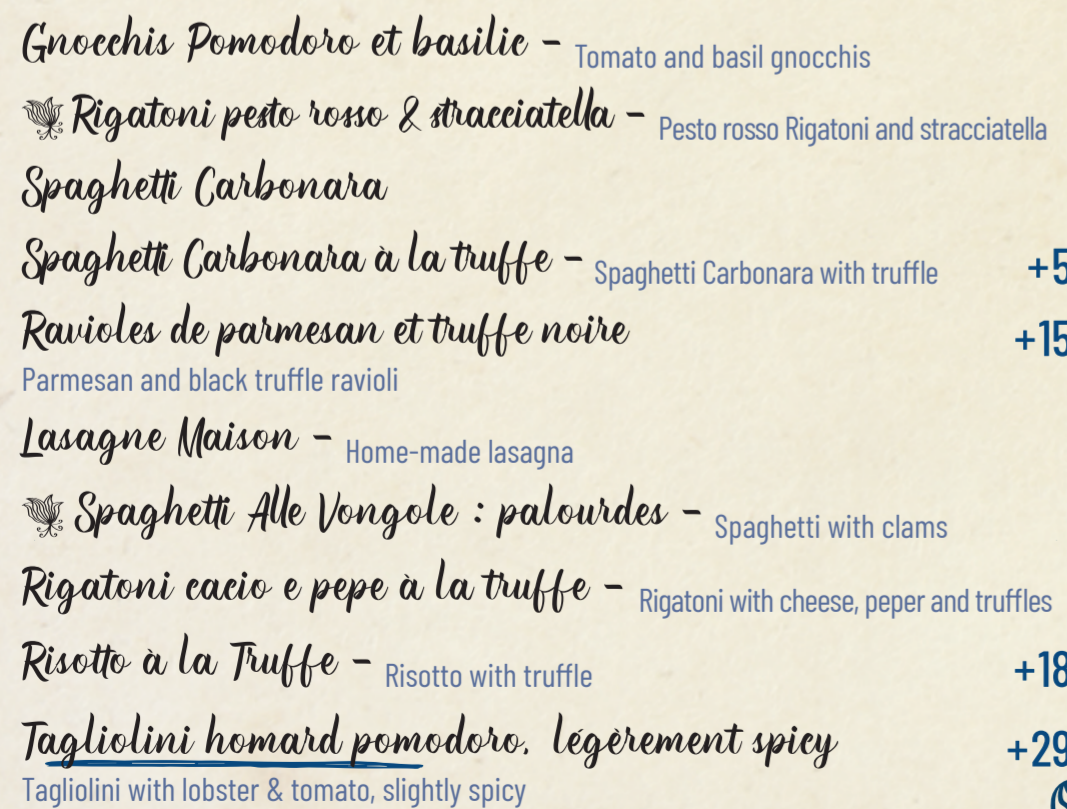 Gnocchis Pomodoro et basilic - Tomato and basil gnocchis
Rigatoni pesto rosso & stracciatella - Pesto rosso Rigatoni and stracciatella
Spaghetti Carbonara
Spaghetti Carbonara à la truffe - Spaghetti Carbonara with truffle +5
Ravioles de parmesan et truffe noire +15
Parmesan and black truffle ravioli
Lasagne Maison - Home-made lasagna
Spaghetti Alle Vongole : palourdes - Spaghetti with clams
Rigatoni cacio e pepe à la truffe - Rigatoni with cheese, peper and truffles
Risotto à la Truffe - Risotto with truffle +18
Tagliolini homard pomodoro, légèrement spicy +29
Tagliolini with lobster & tomato, slightly spicy